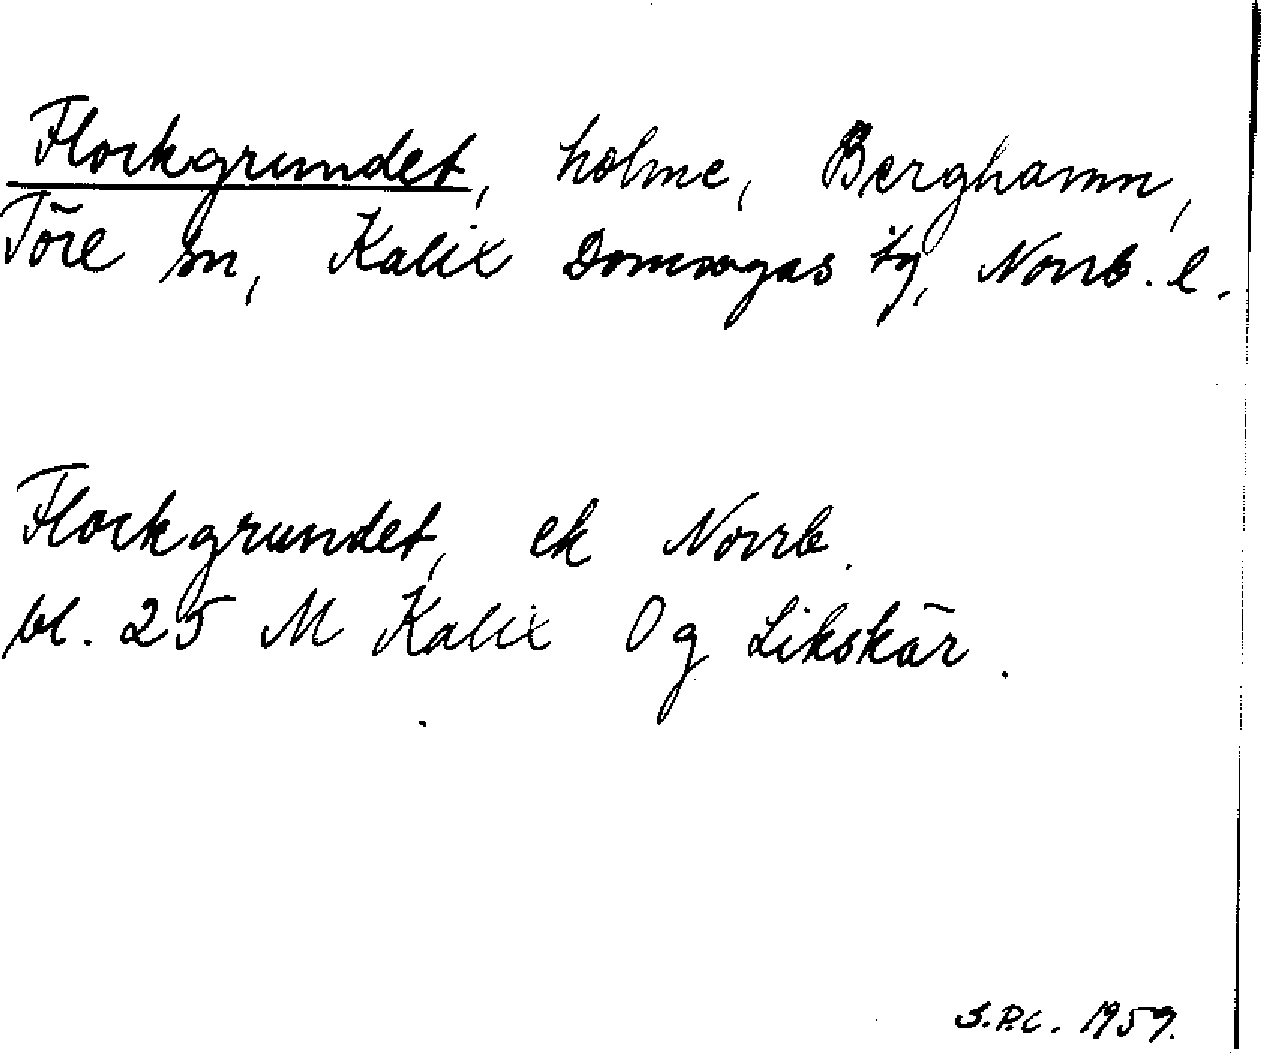 Flockgrundet, holme, Berghamn,
Töre sn, Kalix Domsagas tg, Norrb. l.
Flockgrundet, ek Norrb.
bl. 25 M Kalix Og Likskär.
S.P.C. 1959.